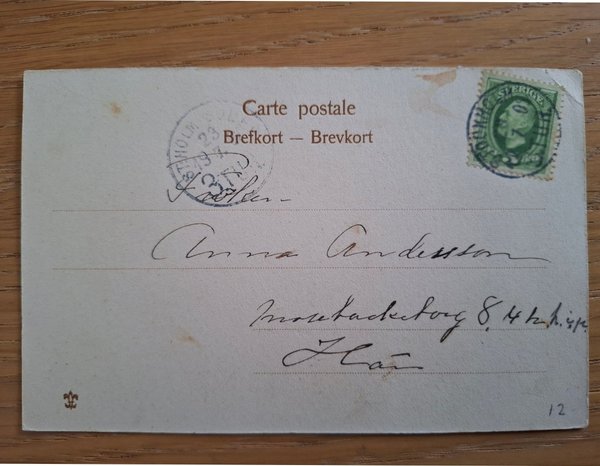 SVERIGE
Carte postale
Brefkort — Brevkort
23
3
Fröken
Anna Andersson
Mosebacketorg 8, 4 tr.
Här
12